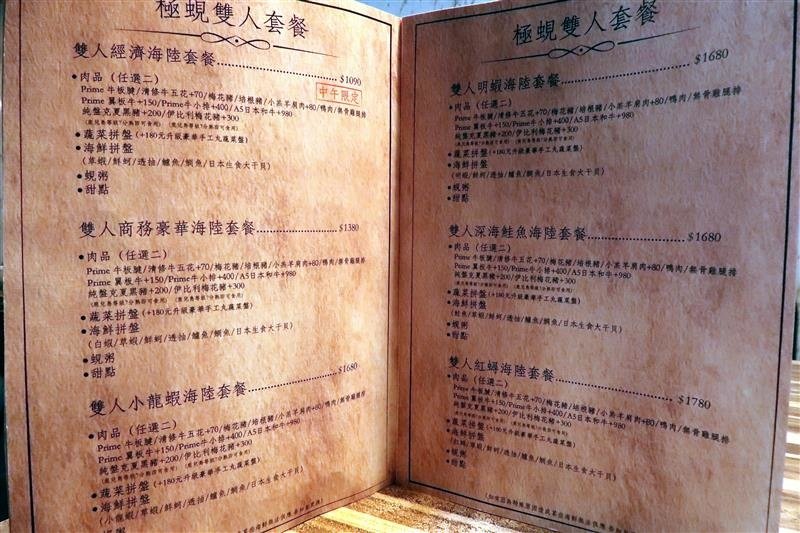 極蜆雙人套餐
雙人經濟海陸套餐 $1090
中午限定
•肉品 (任選二)
Prime 牛板腱/清修牛五花+70/梅花豬/培根豬/小羔羊肩肉+80/鴨肉/無骨雞腿排
Prime 翼板牛+150/Prime牛小排+400/A5日本和牛+980
純盤克夏黑豬+200/伊比利梅花豬+300
•蔬菜拼盤(+180元升級豪華手工丸蔬菜盤)
•海鮮拼盤
(草蝦/鮮蚵/透抽/鱸魚/鯛魚/日本生食大干貝)
•蜆粥
•甜點
雙人商務豪華海陸套餐 $1380
•肉品 (任選二)
Prime 牛板腱/清修牛五花+70/梅花豬/培根豬/小羔羊肩肉+80/鴨肉/無骨雞腿排
Prime 翼板牛+150/Prime牛小排+400/A5日本和牛+980
純盤克夏黑豬+200/伊比利梅花豬+300
•蔬菜拼盤(+180元升級豪華手工丸蔬菜盤)
•海鮮拼盤
(白蝦/草蝦/鮮蚵/透抽/鱸魚/鯛魚/日本生食大干貝)
•蜆粥
•甜點
雙人小龍蝦海陸套餐 $1680
•肉品 (任選二)
Prime 牛板腱/清修牛五花+70/梅花豬/培根豬/小羔羊肩肉+80/鴨肉/無骨雞腿排
Prime 翼板牛+150/Prime牛小排+400/A5日本和牛+980
純盤克夏黑豬+200/伊比利梅花豬+300
•蔬菜拼盤(+180元升級豪華手工丸蔬菜盤)
•海鮮拼盤
(小龍蝦/草蝦/鮮蚵/透抽/鱸魚/鯛魚/日本生食大干貝)
極蜆雙人套餐
雙人明蝦海陸套餐 $1680
•肉品 (任選二)
Prime 牛板腱/清修牛五花+70/梅花豬/培根豬/小羔羊肩肉+80/鴨肉/無骨雞腿排
Prime 翼板牛+150/Prime牛小排+400/A5日本和牛+980
純盤克夏黑豬+200/伊比利梅花豬+300
•蔬菜拼盤(+180元升級豪華手工丸蔬菜盤)
•海鮮拼盤
(明蝦/鮮蚵/透抽/鱸魚/鯛魚/日本生食大干貝)
•蜆粥
•甜點
雙人深海鮭魚海陸套餐 $1680
•肉品 (任選二)
Prime 牛板腱/清修牛五花+70/梅花豬/培根豬/小羔羊肩肉+80/鴨肉/無骨雞腿排
Prime 翼板牛+150/Prime牛小排+400/A5日本和牛+980
純盤克夏黑豬+200/伊比利梅花豬+300
•蔬菜拼盤(+180元升級豪華手工丸蔬菜盤)
•海鮮拼盤
(鮭魚/草蝦/鮮蚵/透抽/鱸魚/鯛魚/日本生食大干貝)
•蜆粥
•甜點
雙人紅蟳海陸套餐 $1780
•肉品 (任選二)
Prime 牛板腱/清修牛五花+70/梅花豬/培根豬/小羔羊肩肉+80/鴨肉/無骨雞腿排
Prime 翼板牛+150/Prime牛小排+400/A5日本和牛+980
純盤克夏黑豬+200/伊比利梅花豬+300
•蔬菜拼盤(+180元升級豪華手工丸蔬菜盤)
•海鮮拼盤
(紅蟳/草蝦/鮮蚵/透抽/鱸魚/鯛魚/日本生食大干貝)
•蜆粥
•甜點